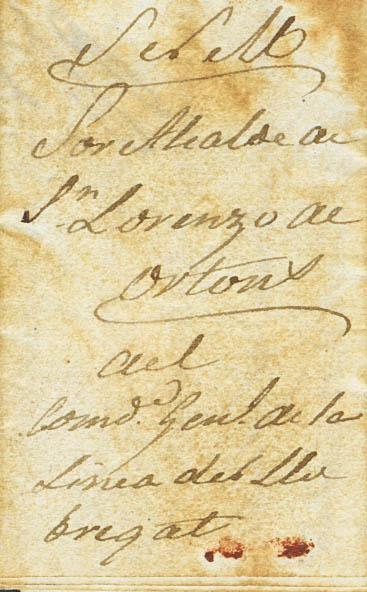 S. N. M.
Sor Alcalde de
Sn. Lorenzo de
Ortons
del
Comde. Genl. de la
Linea del Llo
bregat